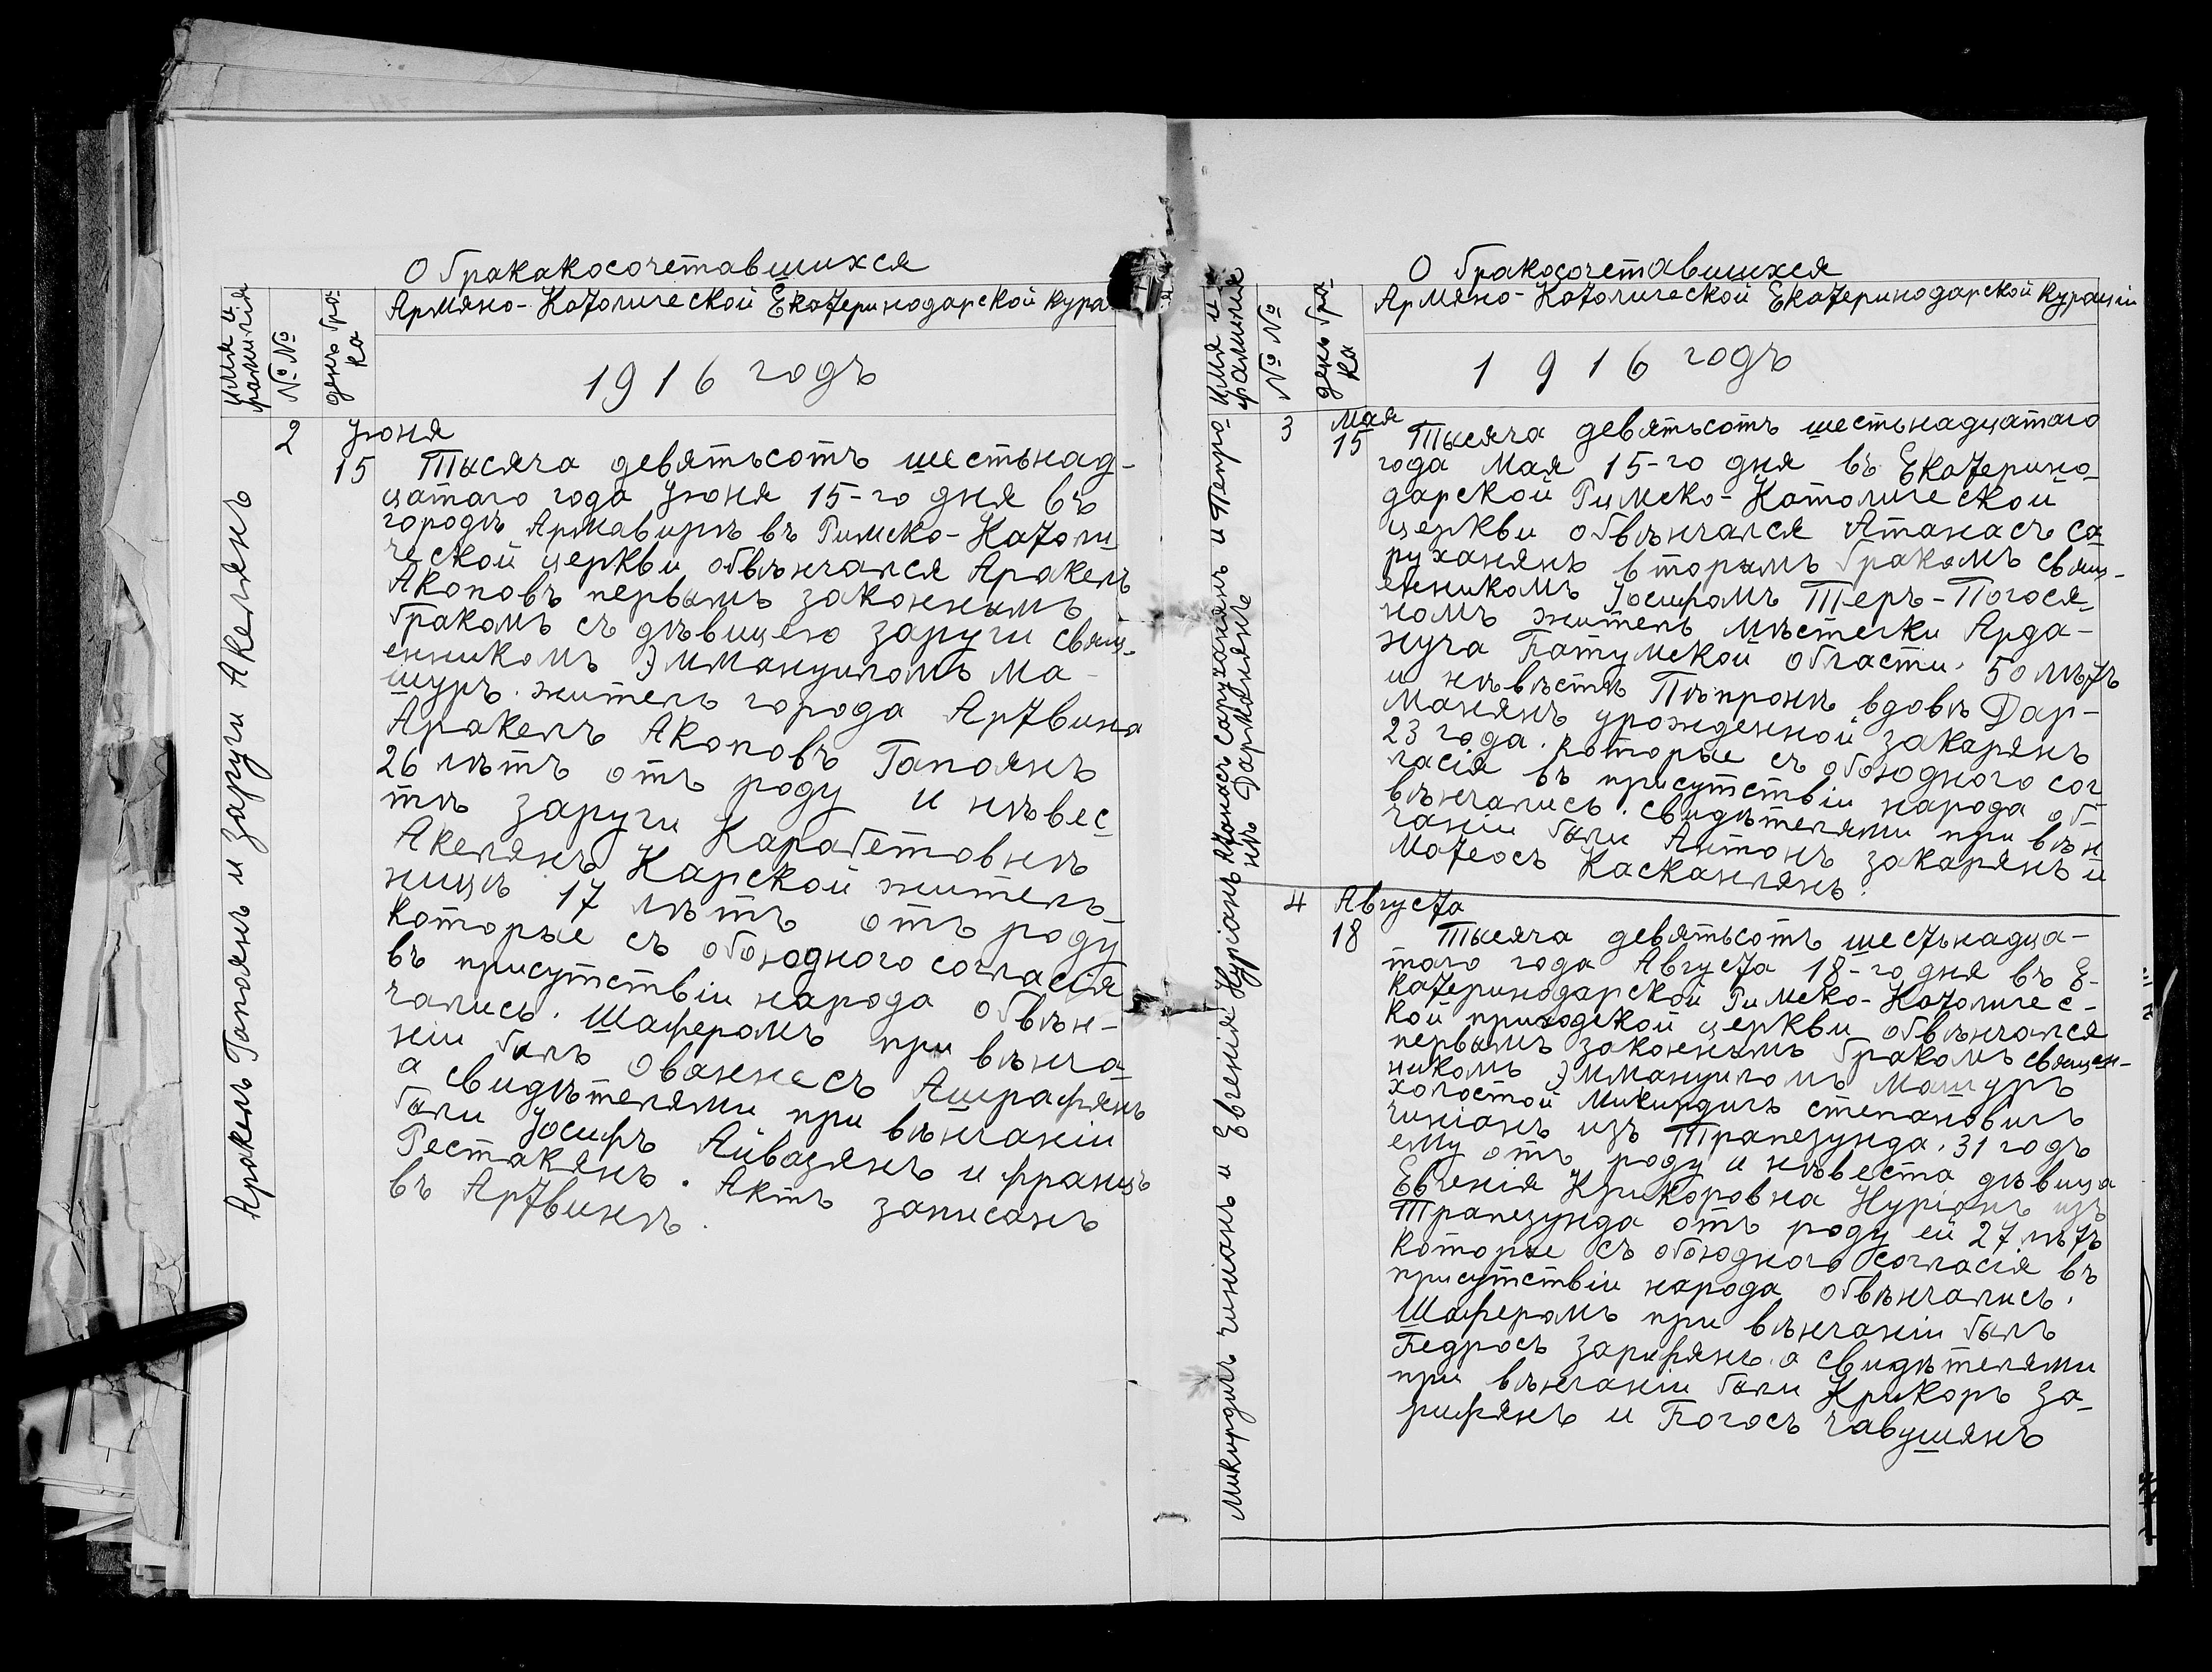 О бракакосочетавшихся
Армяно-Католической Екатеринодарской кура
имя и
фамилія
№ №
день бра-
ка
1916 годъ
Аракелъ Гапоянъ и Заруги Акелянъ
2
Iюня
15
Тысяча девятьсотъ шестьнад-
цатаго года Iюня 15-го дня въ
городѣ Армавирѣ въ Римско-Католи
ческой церкви обвѣнчался Аракелъ
Акоповъ первымъ законнымъ
бракомъ съ дѣвицею Заруги свящ-
енникомъ Эммануиломъ Ма-
шуръ. житель города Артвина
Аракелъ Акоповъ Гапоянъ
26 лѣтъ отъ роду и нѣвес
тѣ Заруги Карабетовнѣ
Акелянъ Карской житель-
ницѣ 17 лѣтъ отъ роду
которые съ обоюдного согласія
въ присутствіи народа обвѣн-
чались. Шаферомъ при вѣнча
ніи былъ Ованнесъ Ашрафянъ
а свидѣтелями при вѣнчаніи
были Iосифъ Айвазянъ и Францъ
Рестакянъ. Актъ записанъ
въ Артвинѣ.
О бракосочетавшихся
Армяно-Католической Екатеринодарской Кураціи
имя и
фамилія
№ №
день бра-
ка
1916 годъ
Атанасъ Саруханянъ и Пепро-
нѣ Дарманянъ
3
Мая
15
Тысяча девятьсотъ шестьнадцатаго
года Мая 15-го дня въ Екатерино-
дарской Римско-Католической
церкви обвѣнчался Атанасъ Са
руханянъ вторымъ бракомъ свящ-
енникомъ Iосифомъ Теръ-Погося-
номъ житель мѣстечки Арда-
нуча Батумской области. 50 лѣтъ
и нѣвѣстѣ Пѣпронѣ вдовѣ Дар-
манянъ урожденной Закарянъ
23 года. которые съ обоюдного сог-
ласія въ присутствіи народа об-
вѣнчались. Свидѣтелями при вѣн
чаніи были Антонъ Закарянъ и
Матеосъ Касканлянъ.
Микиртичъ Чиніанъ и Евгенія Нуріанъ
4
Августа
18
Тысяча девятьсотъ шестьнадца-
таго года Августа 18-го дня въ Е-
катеринодарской Римско-Католичес-
кой приходской церкви обвѣнчался
первымъ законнымъ бракомъ священ-
никомъ Эммануиломъ Машуръ
холостой Микиртичъ Степановичъ
Чиніанъ изъ Трапезунда. 31 годъ
ему отъ роду и нѣвеста дѣвица
Евгенія Крикоровна Нуріанъ изъ
Трапезунда отъ роду ей 27 лѣтъ
которые съ обоюдного согласія въ
присутствіи народа обвѣнчались.
Шаферомъ при вѣнчаніи былъ
Бедросъ Зарифянъ. а свидѣтелями
при вѣнчаніи были Крикоръ За-
рифянъ и Богосъ Чавушянъ